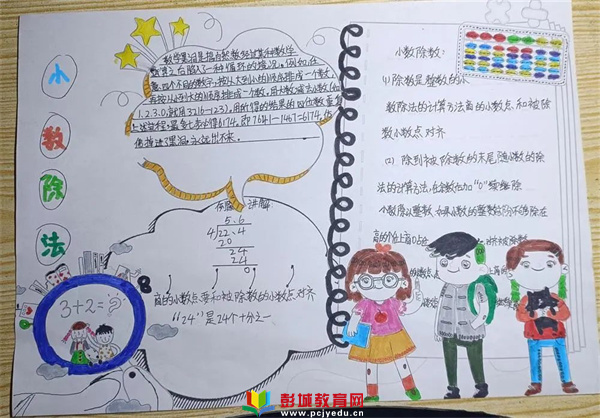 小
数
除
法
数学黑洞是指自然数经过某种数学
运算之后陷入了一种循环的情况。例如,在
意四个不同的数字,按从大到小的顺序排成一个数,
再按从小到大的顺序排成一个数,用大数减去小数(如
1.2.3.0,就用3210-123),用所得的结果的四位数重复
上述过程,最多七步必得6174,即7641-1467=6174,仿
佛掉进了黑洞,永远出不来。
例题 讲解
5.6
4/22.4
20
24
24
0
商的小数点要和被除数的小数点对齐
“24”是24个十分之一
3+2=?
小数除数:
(1)除数是整数的小
数除法的计算方法商的小数点和被除
数小数点对齐
(2) 除到被除数的末尾
法的计算方法,
个数除以整数,如果小数的整数部分不够除
商的个位上商0占位
彭城教育网
www.pcjyedu.cn